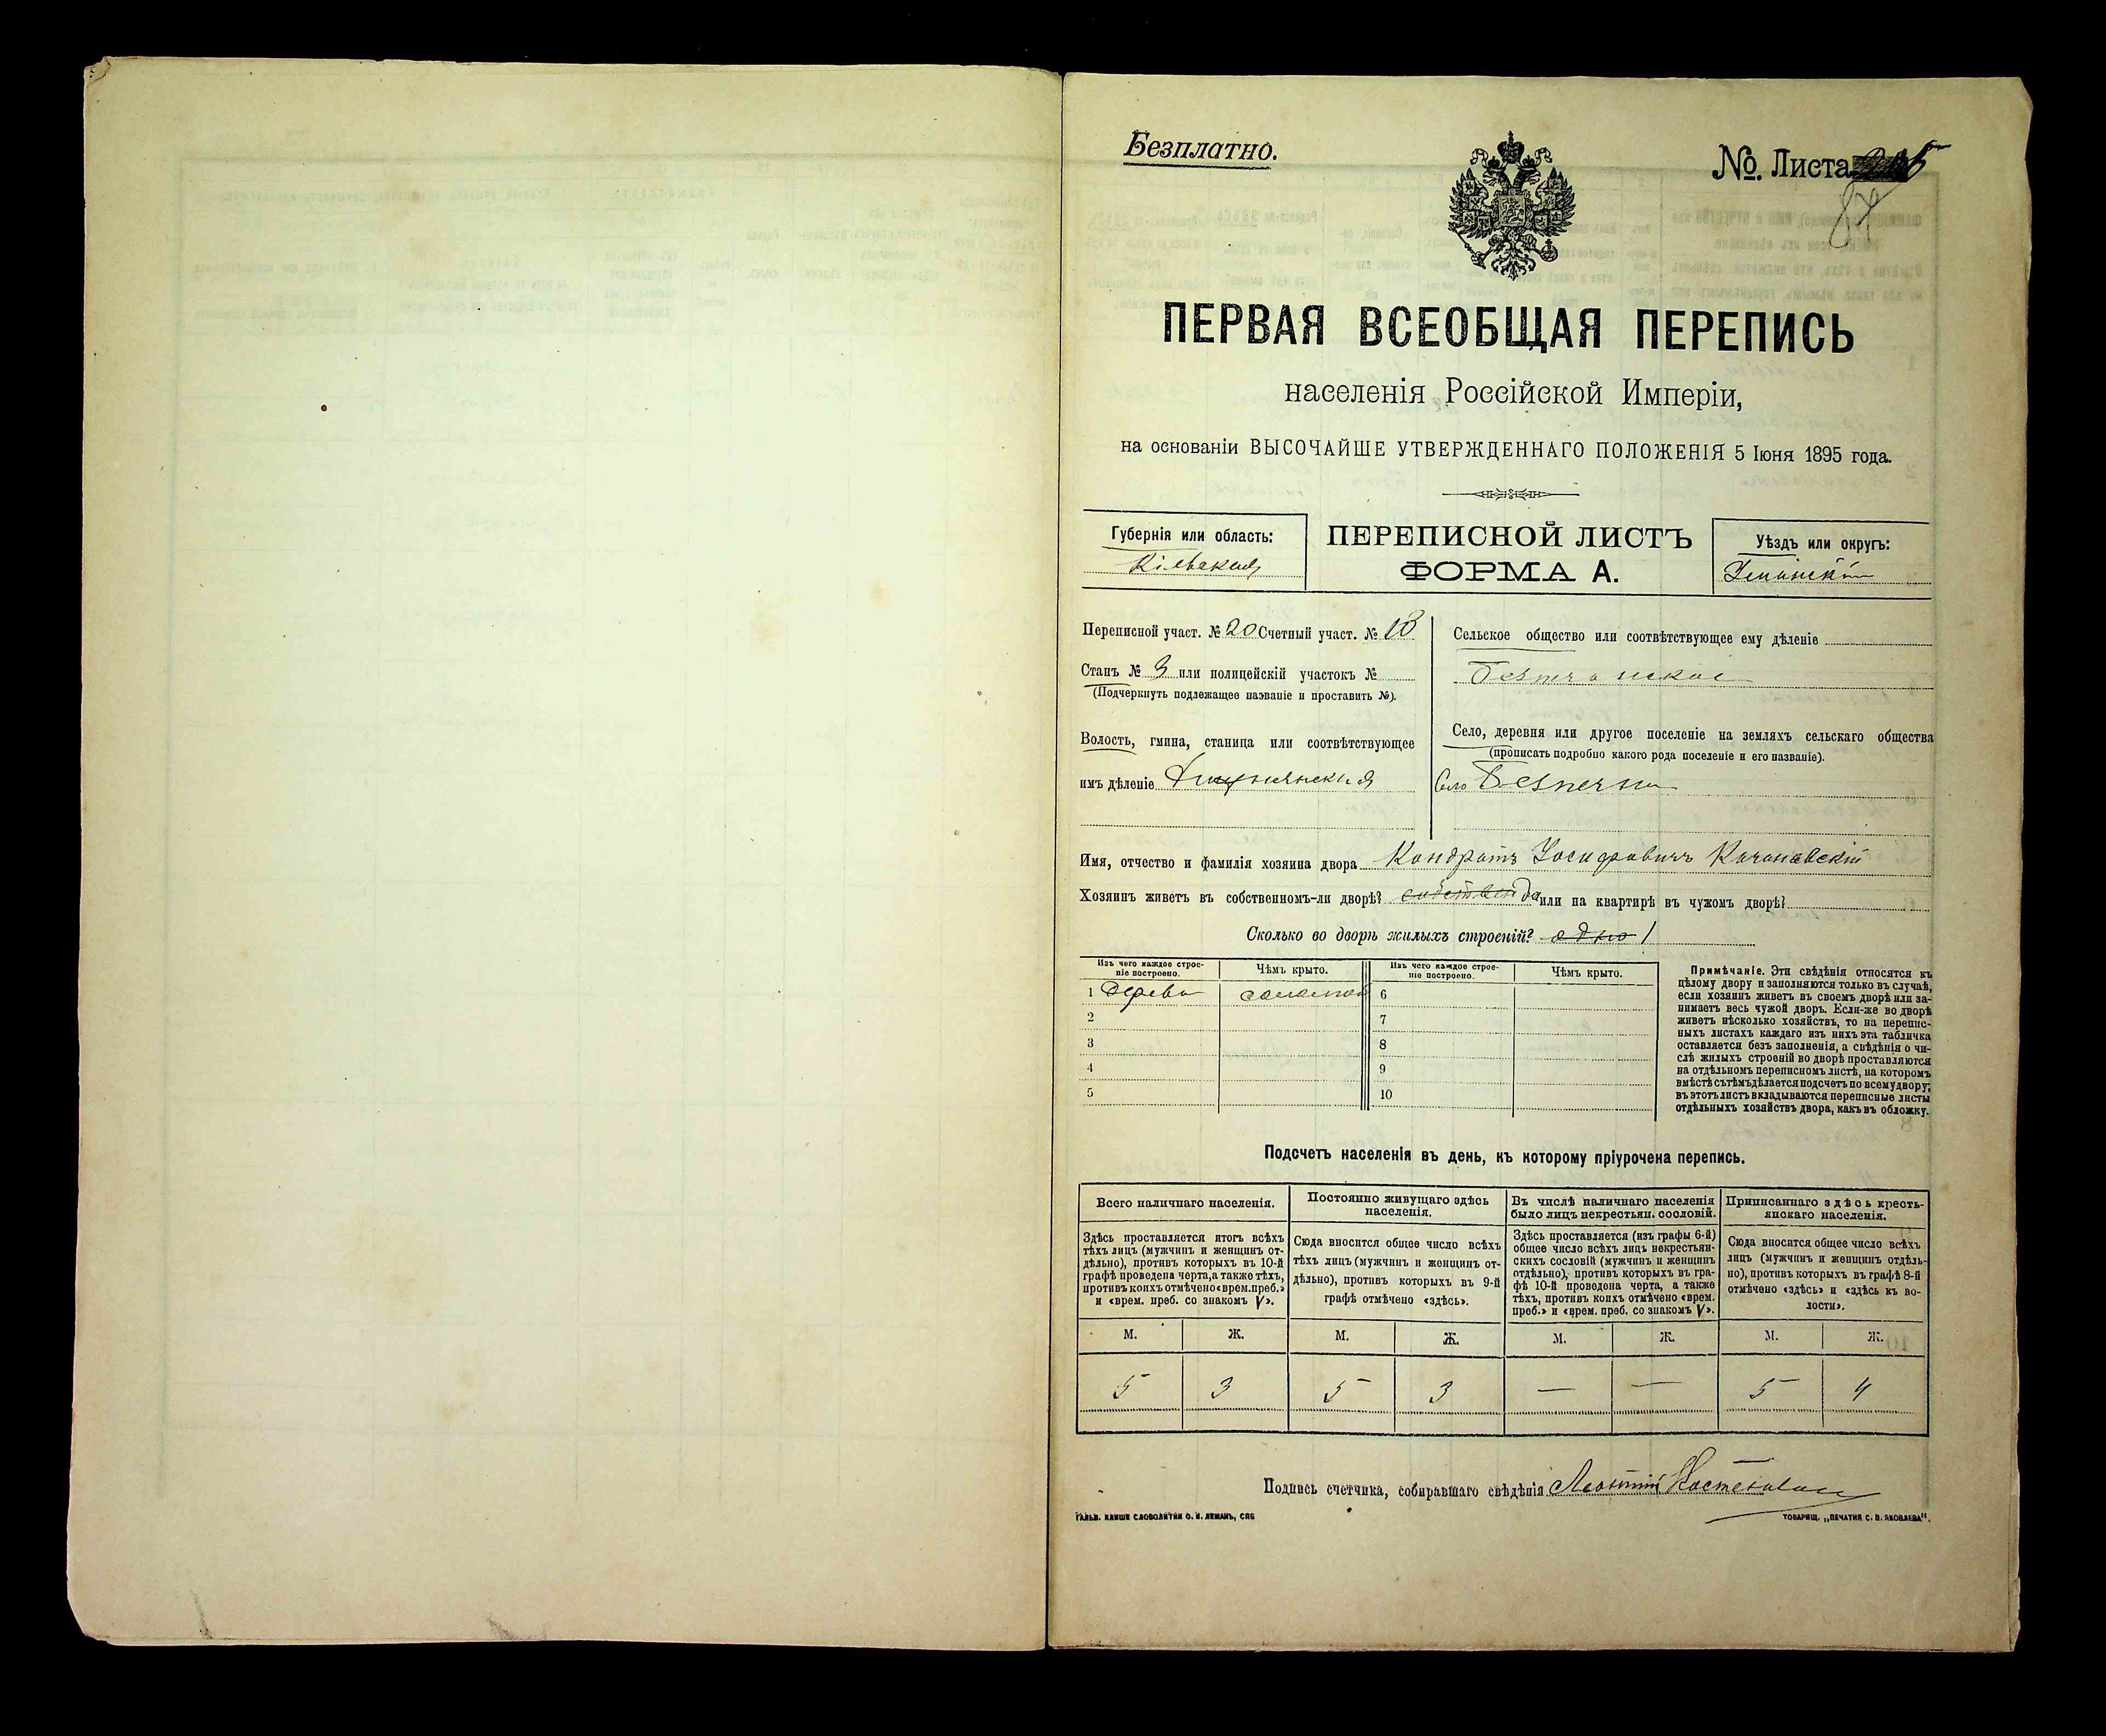 Безплатно.
№. Листа
87
ПЕРВАЯ ВСЕОБЩАЯ ПЕРЕПИСЬ
населенія Россійской Имперіи,
на основаніи ВЫСОЧАЙШЕ УТВЕРЖДЕННАГО ПОЛОЖЕНІЯ 5 Іюня 1895 года.
Губернія или область:
Кіевская
ПЕРЕПИСНОЙ ЛИСТЪ
ФОРМА А.
Уѣздъ или округъ:
Уманскій
Переписной участ. № 20 Счетный участ. № 18
Станъ № 3 или полицейскій участокъ №
(Подчеркнуть подлежащее названіе и проставить №).
Волость, гмина, станица или соотвѣтствующее
имъ дѣленіе
Сельское общество или соотвѣтствующее ему дѣленіе
Безпечанское
Село, деревня или другое поселеніе на земляхъ сельскаго общества
(прописать подробно какого рода поселеніе и его названіе).
Село Безпечна
Имя, отчество и фамилія хозяина двора Кондратъ Іосифовичъ Качановскій
Хозяинъ живетъ въ собственномъ-ли дворѣ? собствен да или на квартирѣ въ чужомъ дворѣ?
Сколько во дворѣ жилыхъ строеній? одно 1
Изъ чего каждое строе-
ніе построено.
Чѣмъ крыто.
Изъ чего каждое строе-
ніе построено.
Чѣмъ крыто.
1 дерева соломой 6
2 7
3 8
4 9
5 10
Примѣчаніе. Эти свѣдѣнія относятся къ
цѣлому двору и заполняются только въ случаѣ,
если хозяинъ живетъ въ своемъ дворѣ или за-
нимаетъ весь чужой дворъ. Если-же во дворѣ
живетъ нѣсколько хозяйствъ, то на перепис-
ныхъ листахъ каждаго изъ нихъ эта табличка
оставляется безъ заполненія, а свѣдѣнія о чи-
слѣ жилыхъ строеній во дворѣ проставляются
на отдѣльномъ переписномъ листѣ, на которомъ
вмѣстѣ съ тѣмъ дѣлается подсчетъ по всему двору;
въ этотъ листъ вкладываются переписные листы
отдѣльныхъ хозяйствъ двора, какъ въ обложку.
Подсчетъ населенія въ день, къ которому пріурочена перепись.
Всего наличнаго населенія.
Здѣсь проставляется итогъ всѣхъ
тѣхъ лицъ (мужчинъ и женщинъ от-
дѣльно), противъ которыхъ въ 10-й
графѣ проведена черта, а также тѣхъ,
противъ коихъ отмѣчено «врем. преб.»
и «врем. преб. со знакомъ V».
Постоянно живущаго здѣсь
населенія.
Сюда вносится общее число всѣхъ
тѣхъ лицъ (мужчинъ и женщинъ от-
дѣльно), противъ которыхъ въ 9-й
графѣ отмѣчено «здѣсь».
Въ числѣ наличнаго населенія
было лицъ некрестьян. сословій.
Здѣсь проставляется (изъ графы 6-й)
общее число всѣхъ лицъ некрестьян-
скихъ сословій (мужчинъ и женщинъ
отдѣльно), противъ которыхъ въ гра-
фѣ 10-й проведена черта, а также
тѣхъ, противъ коихъ отмѣчено «врем.
преб.» и «врем. преб. со знакомъ V».
Приписаннаго здѣсь кресть-
янскаго населенія.
Сюда вносится общее число всѣхъ
лицъ (мужчинъ и женщинъ отдѣль-
но), противъ которыхъ въ графѣ 8-й
отмѣчено «здѣсь» и «здѣсь къ во-
лости».
М. Ж. М. Ж. М. Ж. М. Ж.
5 3 5 3 — — 5 4
Подпись счетчика, собиравшаго свѣдѣнія
ГАЛЬВ. КЛИШЕ СЛОВОЛИТНИ О. И. ЛЕМАНЪ, СПБ
ТОВАРИЩ. „ПЕЧАТНЯ С. П. ЯКОВЛЕВА".